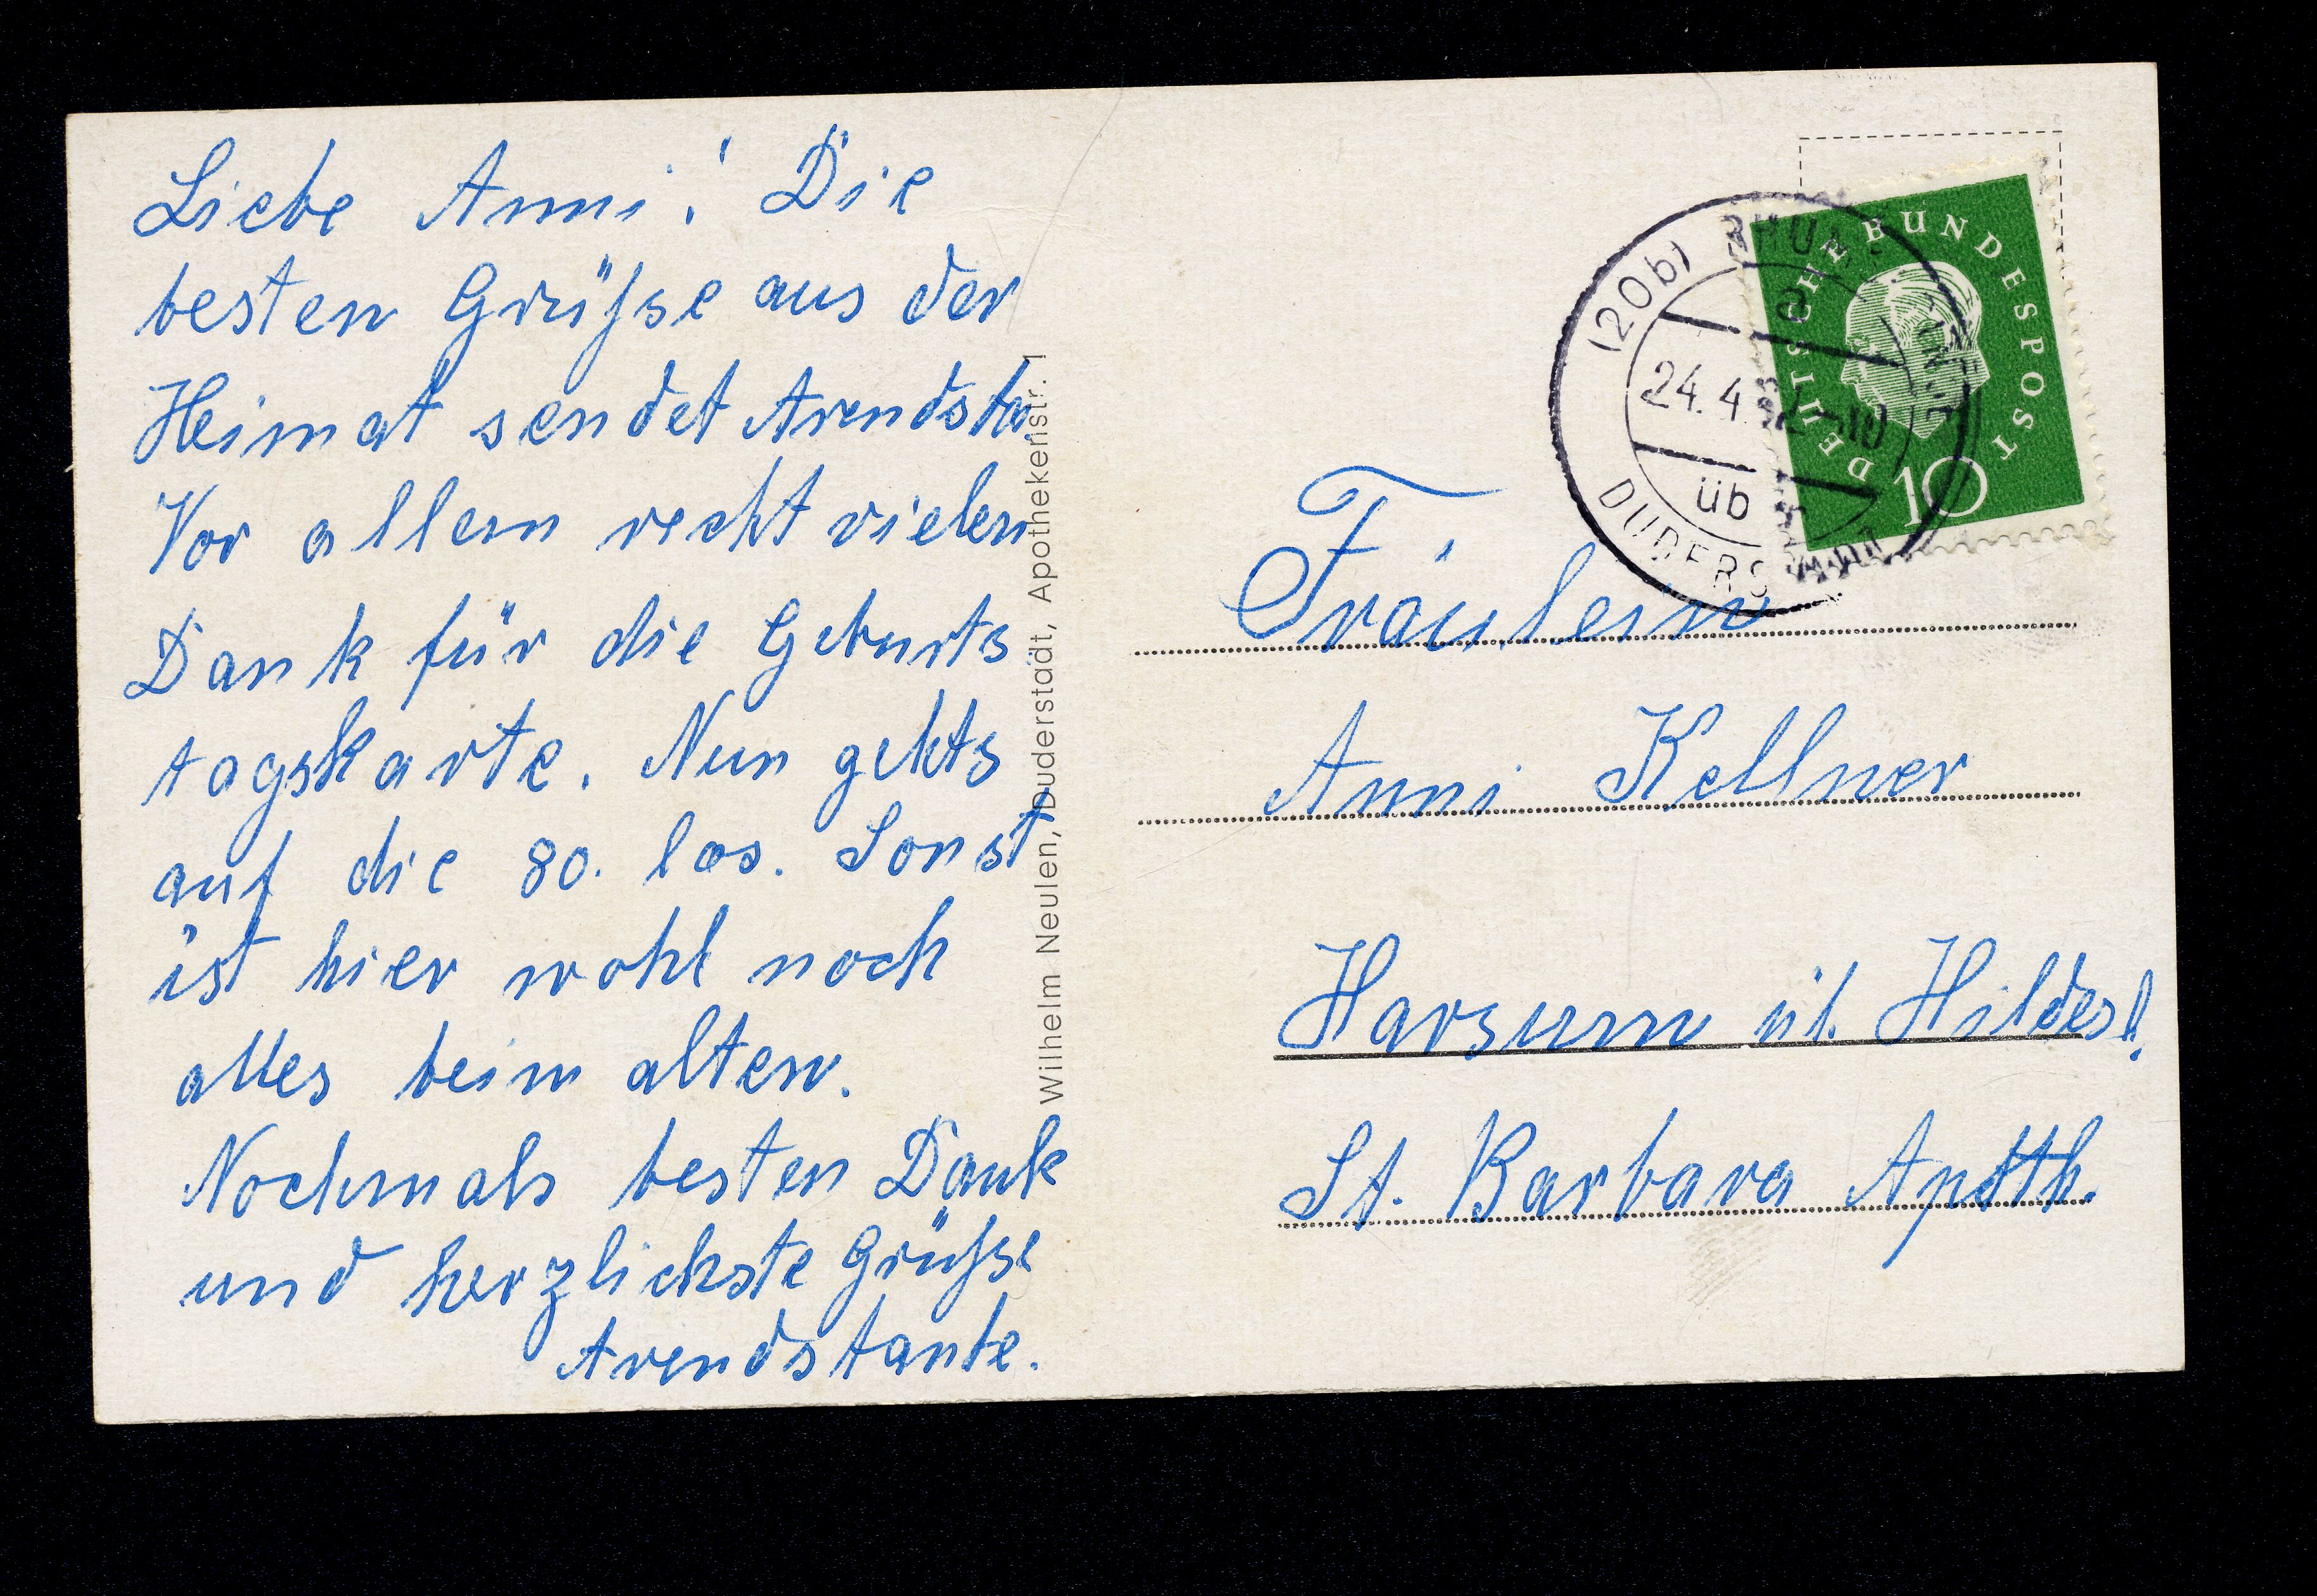 Liebe Anni! Die
besten Grüße aus der
Heimat sendet Arendsta.
Vor allem recht vielen
Dank für die Geburts
tagskarte. Nun gehts
auf die 80. los. Sonst
ist hier wohl noch
alles beim alten.
Nochmals besten Dank
und herzlichste Grüße
Arendstante.
Wilhelm Neulen, Duderstadt, Apothekenstr. 1
DEUTSCHE BUNDESPOST
10
(20b)
a
24.4.
üb
DUDERS
Fräulein
Anni Kellner
Harsum üb. Hildesh
St. Barbara Apoth.